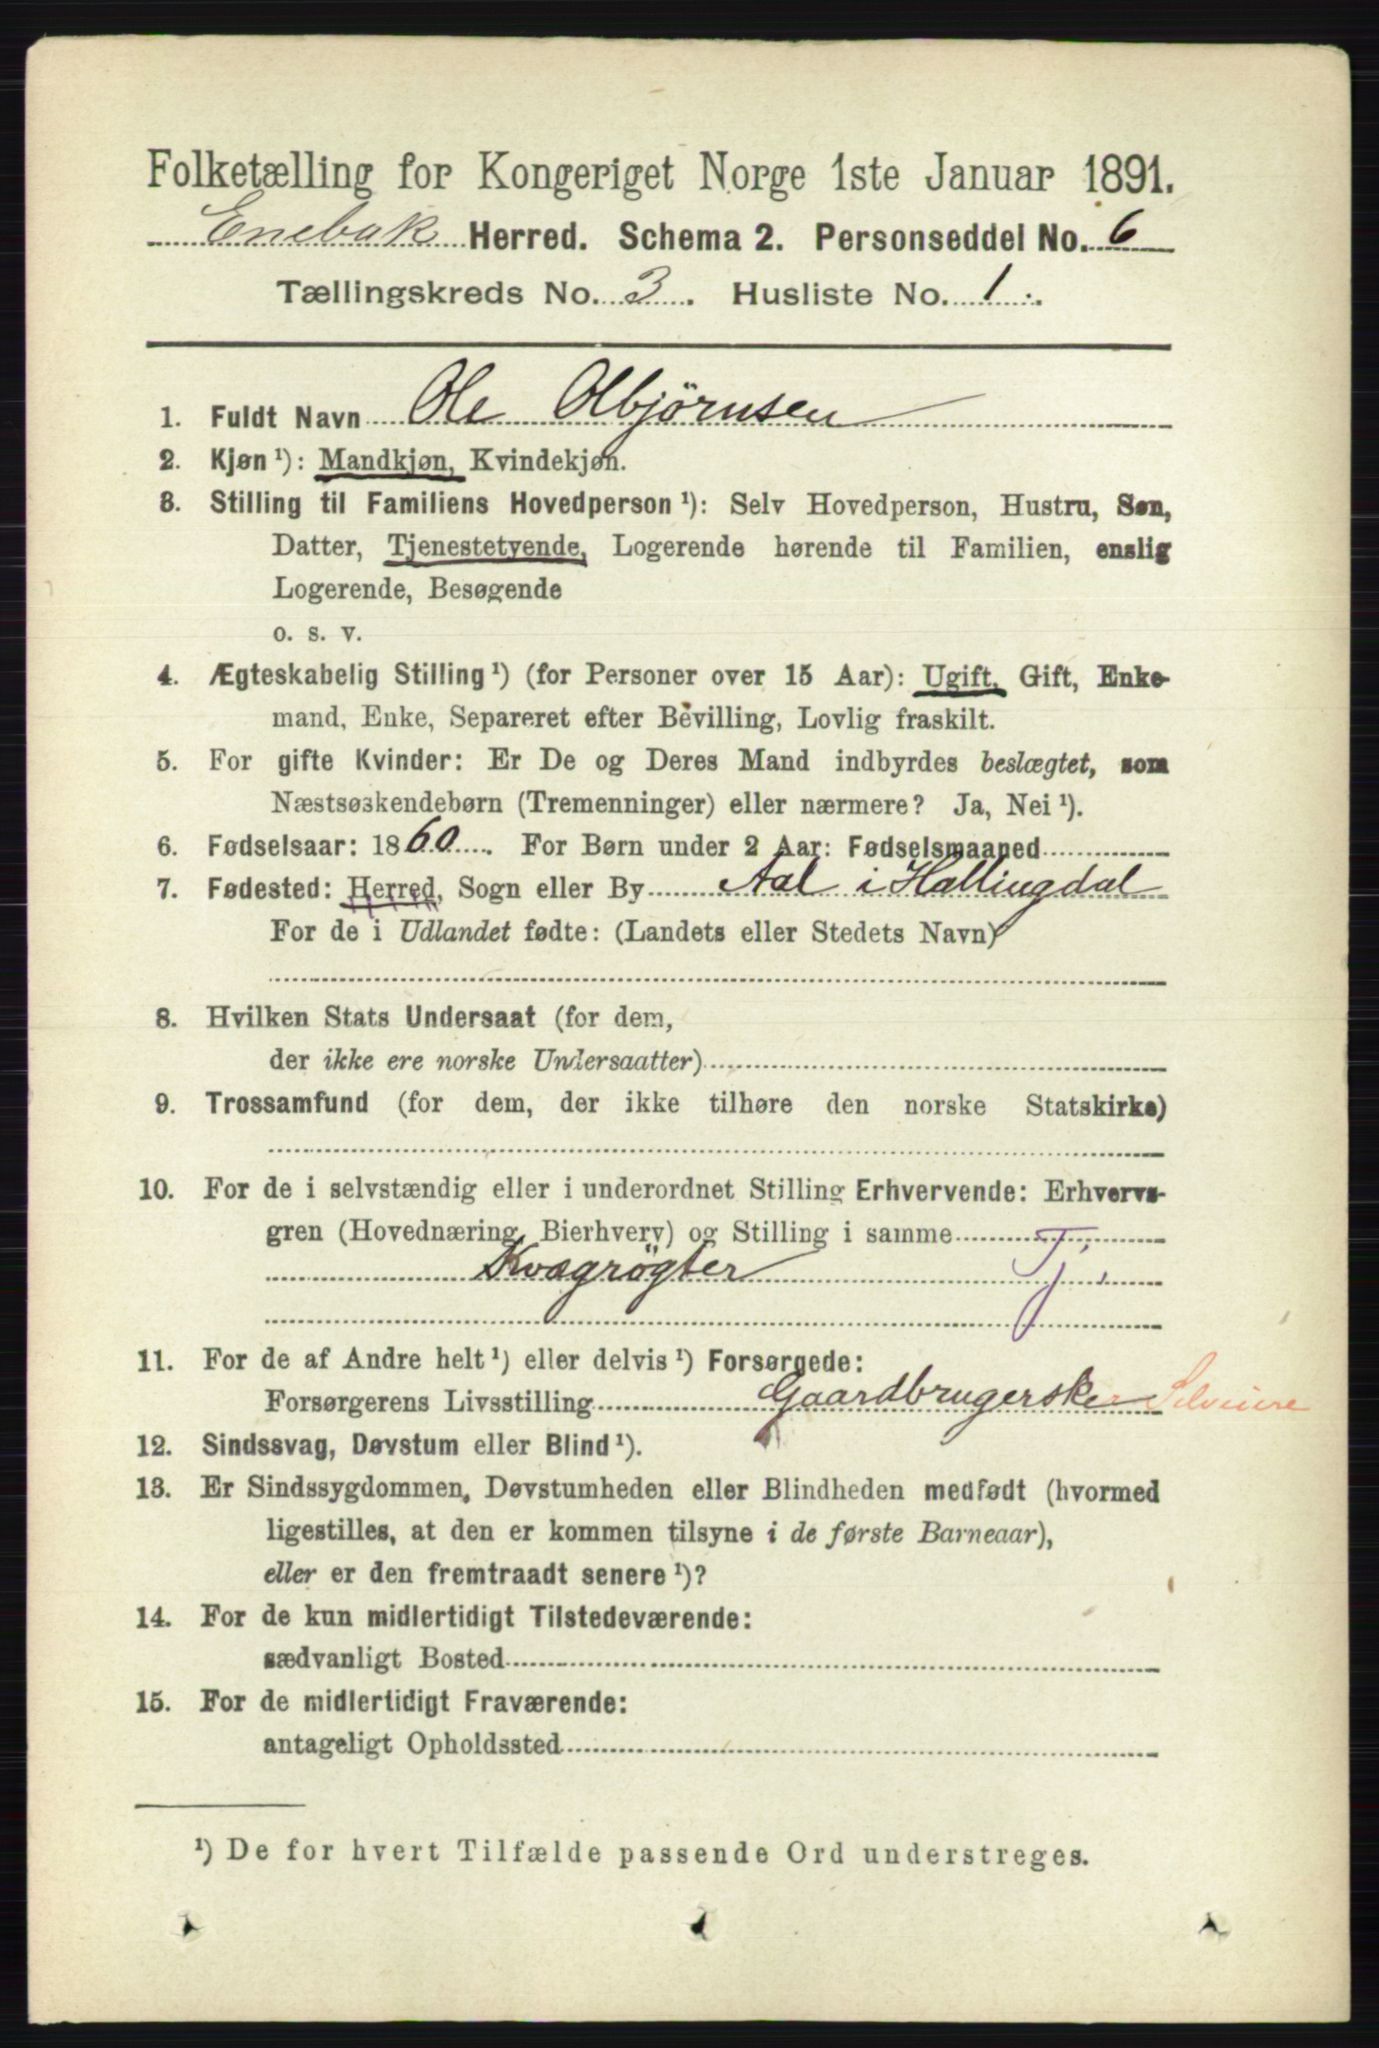 Folketælling for Kongeriget Norge 1ste Januar 1891.
Enebak Herred. Schema 2. Personseddel No. 6
Tællingskreds No. 3. Husliste No. 1.
1. Fuldt Navn Ole Olbjørnsen
2. Kjøn ¹): Mandkjøn, Kvindekjøn.
3. Stilling til Familiens Hovedperson ¹): Selv Hovedperson, Hustru, Søn,
Datter, Tjenestetyende, Logerende hørende til Familien, enslig
Logerende, Besøgende
o. s. v.
4. Ægteskabelig Stilling ¹) (for Personer over 15 Aar): Ugift, Gift, Enke-
mand, Enke, Separeret efter Bevilling, Lovlig fraskilt.
5. For gifte Kvinder: Er De og Deres Mand indbyrdes beslægtet, som
Næstsøskendebørn (Tremenninger) eller nærmere? Ja, Nei ¹).
6. Fødselsaar: 1860. For Børn under 2 Aar: Fødselsmaaned
7. Fødested: Herred, Sogn eller By Aal i Hallingdal
For de i Udlandet fødte: (Landets eller Stedets Navn)
8. Hvilken Stats Undersaat (for dem,
der ikke ere norske Undersaatter)
9. Trossamfund (for dem, der ikke tilhøre den norske Statskirke)
10. For de i selvstændig eller i underordnet Stilling Erhvervende: Erhvervs-
gren (Hovednæring, Bierhverv) og Stilling i samme
Kvægrøgter Tj.
11. For de af Andre helt ¹) eller delvis ¹) Forsørgede:
Forsørgerens Livsstilling Gaardbrugerske
12. Sindssvag, Døvstum eller Blind ¹).
13. Er Sindssygdommen, Døvstumheden eller Blindheden medfødt (hvormed
ligestilles, at den er kommen tilsyne i de første Barneaar),
eller er den fremtraadt senere ¹)?
14. For de kun midlertidigt Tilstedeværende:
sædvanligt Bosted
15. For de midlertidigt Fraværende:
antageligt Opholdssted
¹) De for hvert Tilfælde passende Ord understreges.